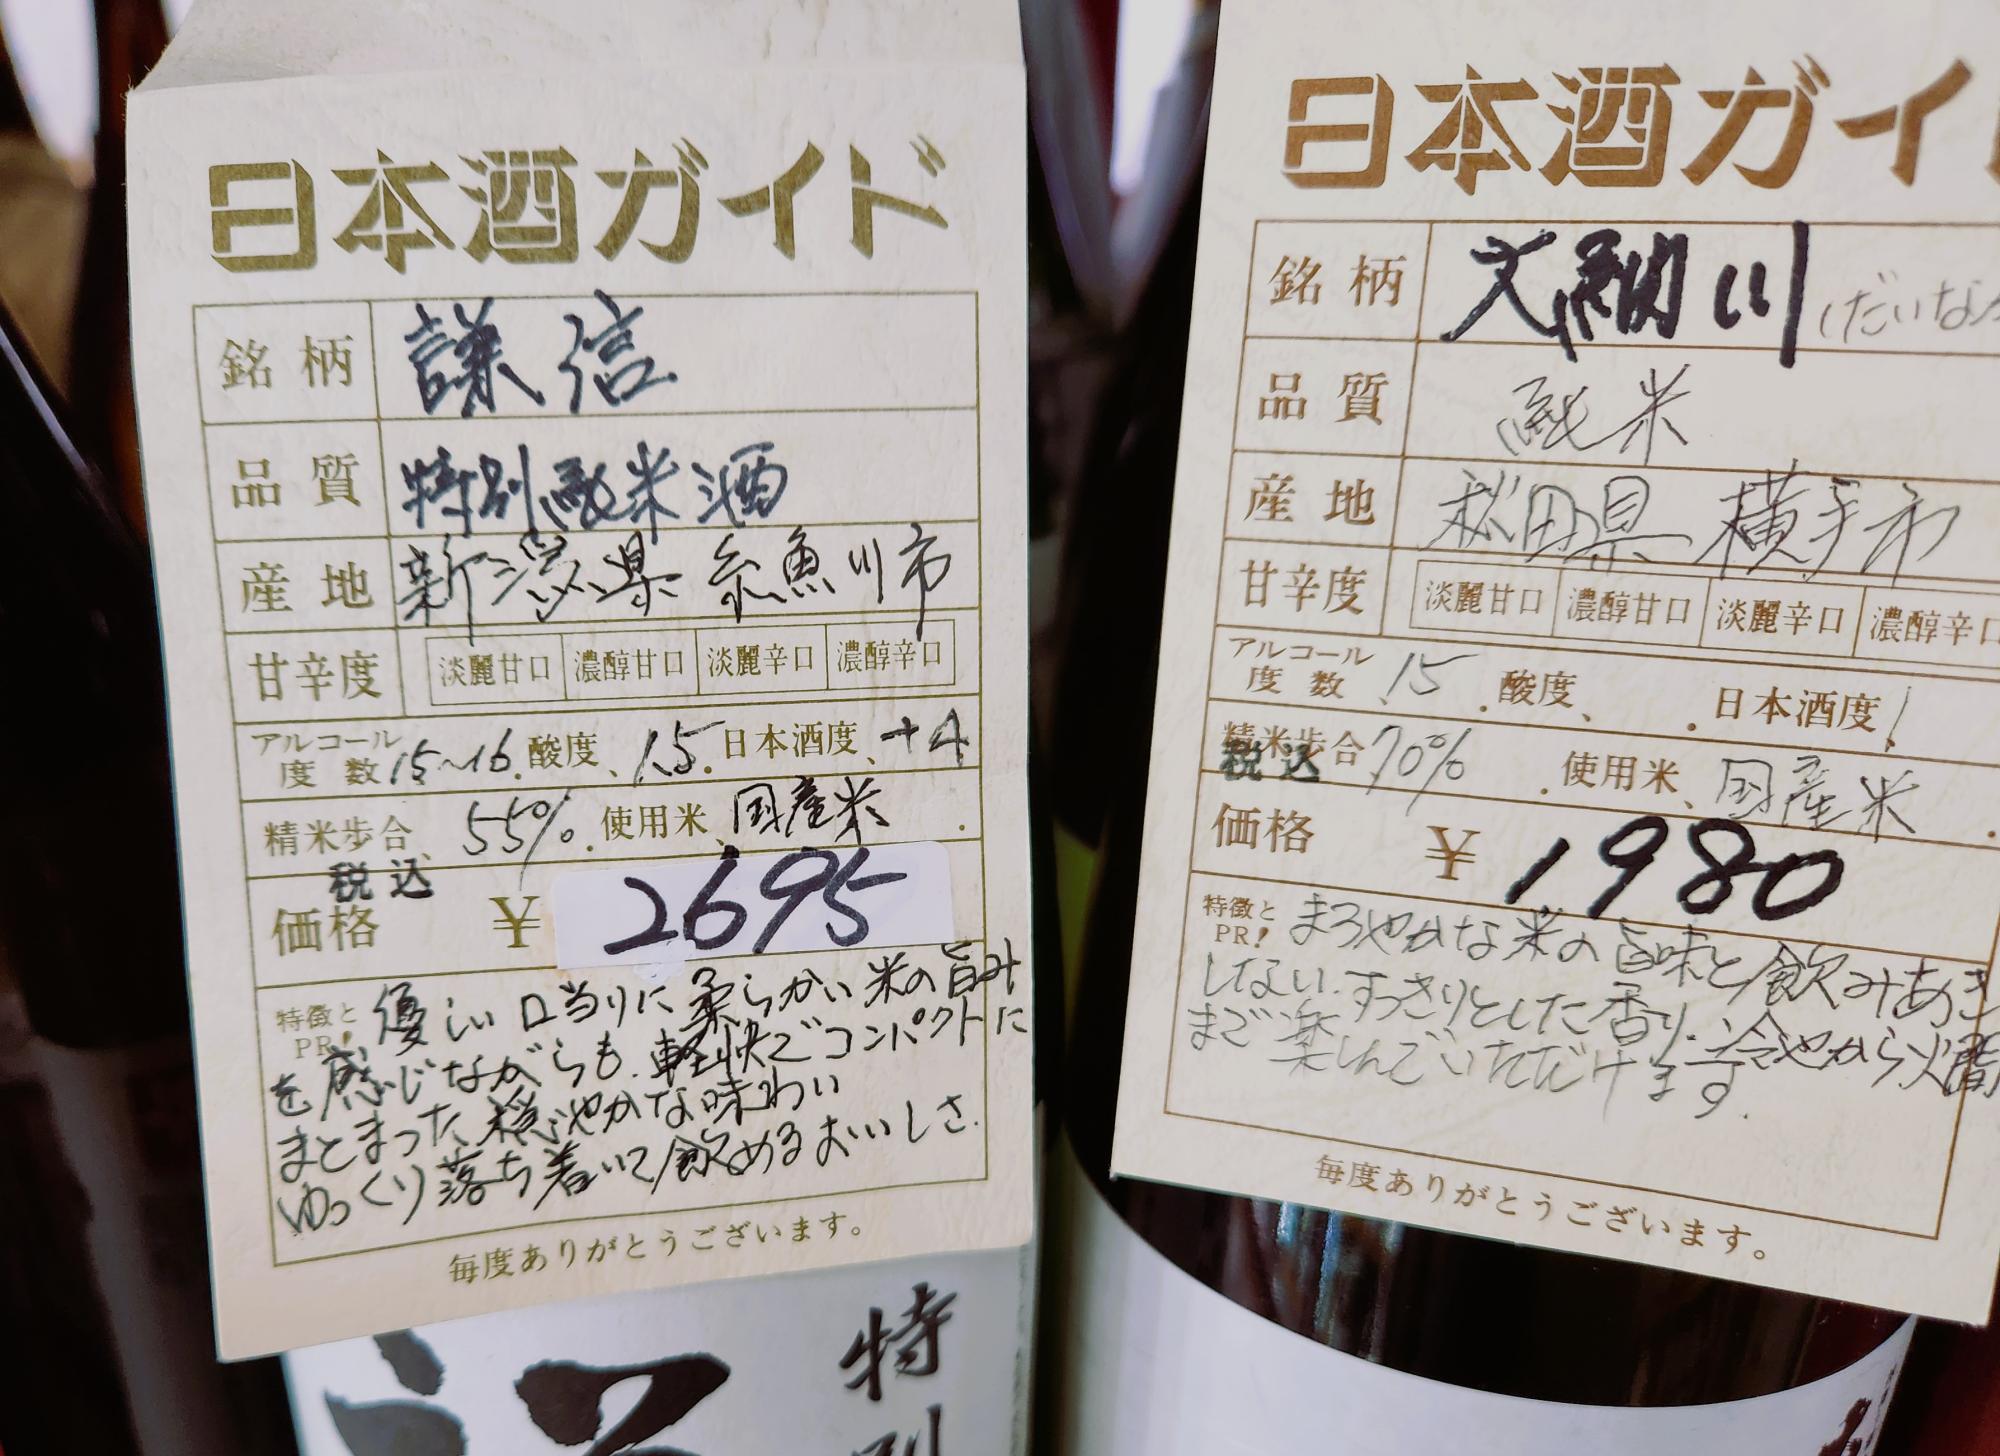 日本酒ガイド
銘柄 謙信
品質 特別純米酒
産地 新潟県 糸魚川市
甘辛度 淡麗甘口 濃醇甘口 淡麗辛口 濃醇辛口
アルコール度数、15〜16. 酸度、1.5. 日本酒度、+4
精米歩合、55%. 使用米、国産米.
税込
価格 ¥2695
特徴とPR! 優しい口当りに柔らかい米の旨み
を感じながらも、軽快でコンパクトに
まとまった、穏やかな味わい
ゆっくり落ち着いて飲めるおいしさ.
毎度ありがとうございます。
特別
日本酒ガイ
銘柄 大納川 (だいな
品質 純米
産地 秋田県 横手市
甘辛度 淡麗甘口 濃醇甘口 淡麗辛口 濃醇辛口
アルコール度数、15. 酸度、. 日本酒度、
精米歩合、70%. 使用米、国産米.
税込
価格 ¥1980
特徴とPR! まろやかな米の旨味と飲みあき
しない、すっきりとした香り. 冷やから火燗
まで楽しんでいただけます.
毎度ありがとうございます。